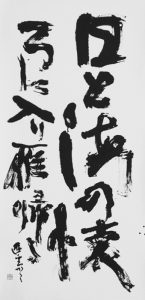 日と海の懐
ろに入り雁帰る